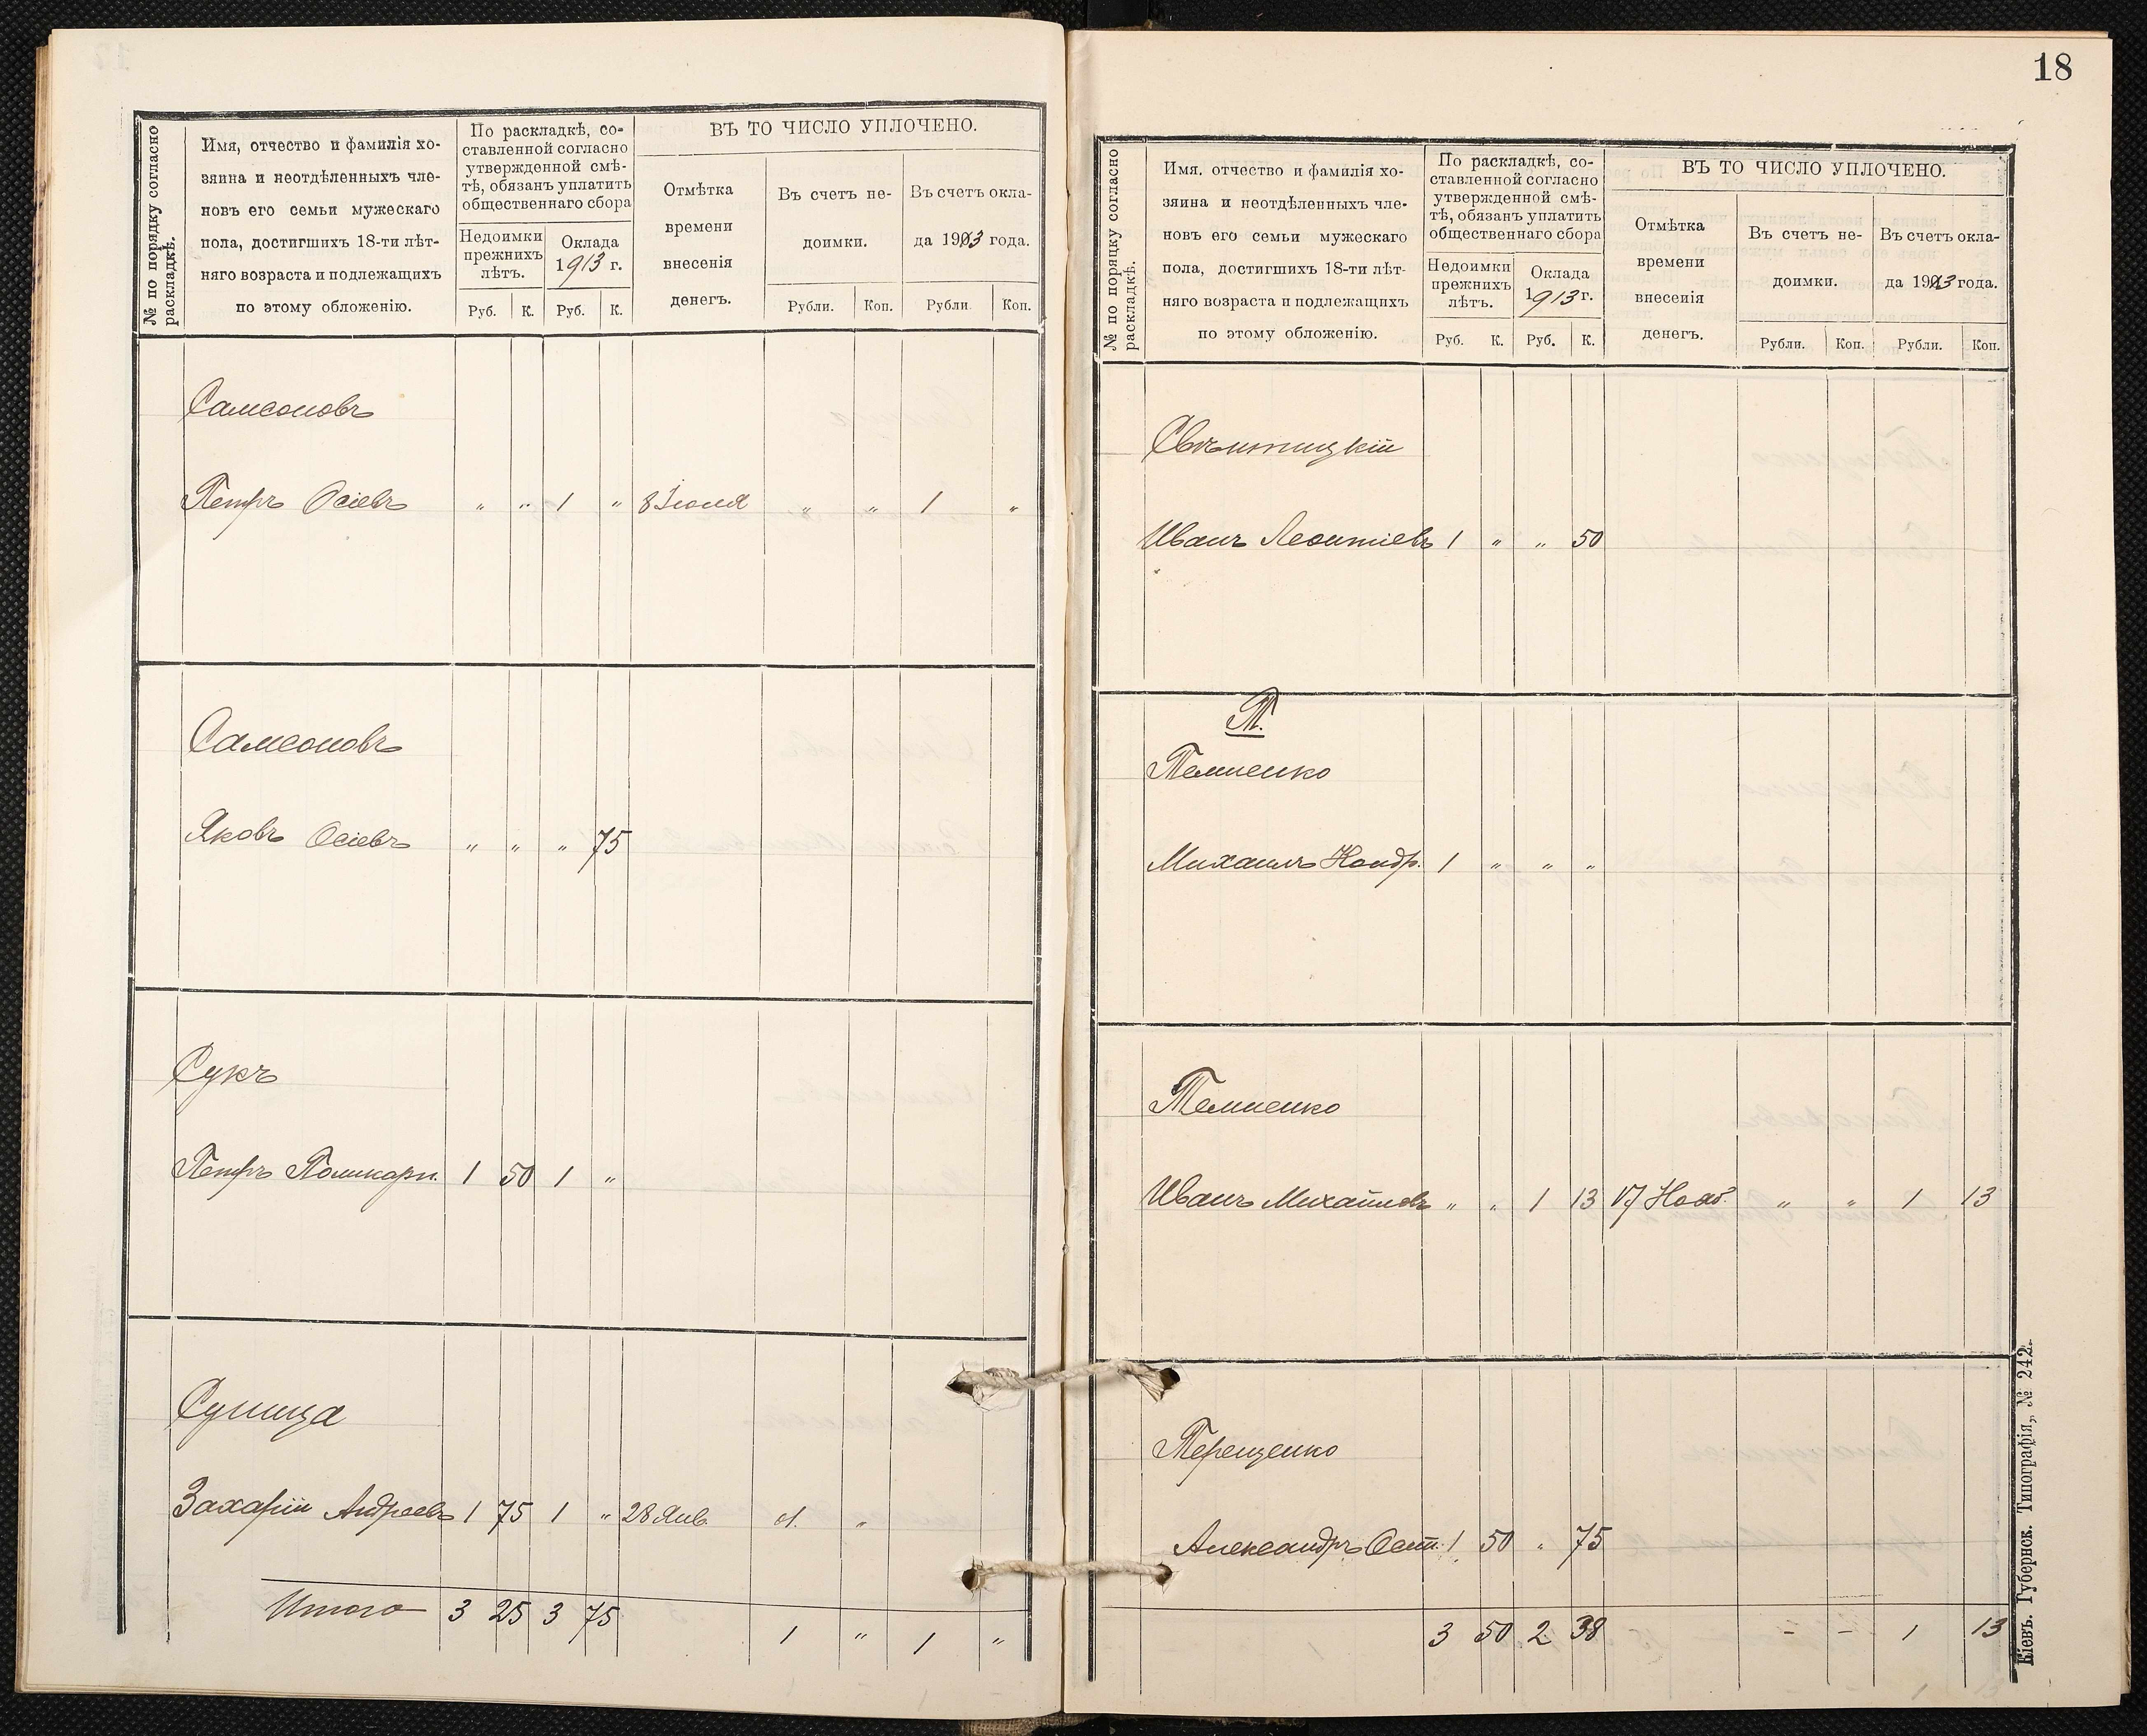 18
№ по порядку согласно раскладкѣ.
Имя, отчество и фамилія хо-
зяина и неотдѣленныхъ чле-
новъ его семьи мужескаго
пола, достигшихъ 18-ти лѣт-
няго возраста и подлежащихъ
по этому обложенію.
По раскладкѣ, со-
ставленной согласно
утвержденной смѣ-
тѣ, обязанъ уплатить
общественнаго сбора
Недоимки прежнихъ лѣтъ.
Оклада 1913 г.
Руб. К. Руб. К.
ВЪ ТО ЧИСЛО УПЛОЧЕНО.
Отмѣтка
времени
внесенія
денегъ.
Въ счетъ не-
доимки.
Въ счетъ окла-
да 1913 года.
Рубли. Коп. Рубли. Коп.
Самсоновъ
Петръ Осіевъ " " 1 " 8 Іюля " " 1 "
Самсоновъ
Яковъ Осіевъ " " " 75
Сукъ
Петръ Поликарп. 1 50 1 "
Сушца
Захарій Андреевъ 1 75 1 " 28 Янв. 1. "
Итого 3 25 3 75 1 " 1 "
№ по порядку согласно раскладкѣ.
Имя. отчество и фамилія хо-
зяина и неотдѣленныхъ чле-
новъ его семьи мужескаго
пола, достигшихъ 18-ти лѣт-
няго возраста и подлежащихъ
по этому обложенію.
По раскладкѣ, со-
ставленной согласно
утвержденной смѣ-
тѣ, обязанъ уплатить
общественнаго сбора
Недоимки прежнихъ лѣтъ.
Оклада 1913 г.
Руб. К. Руб. К.
ВЪ ТО ЧИСЛО УПЛОЧЕНО.
Отмѣтка
времени
внесенія
денегъ.
Въ счетъ не-
доимки.
Въ счетъ окла-
да 1913 года.
Рубли. Коп. Рубли. Коп.
Свѣнтицкій
Иванъ Леонтіевъ 1 " " 50
Т.
Темненко
Михаилъ Кондр. 1 " " "
Темненко
Иванъ Михайловъ " " 1 13 17 Нояб. " " 1 13
Терещенко
Александръ Осип. 1 50 " 75
3 50 2 38 - - 1 13
Кіевъ. Губернск. Типографія,, № 242.